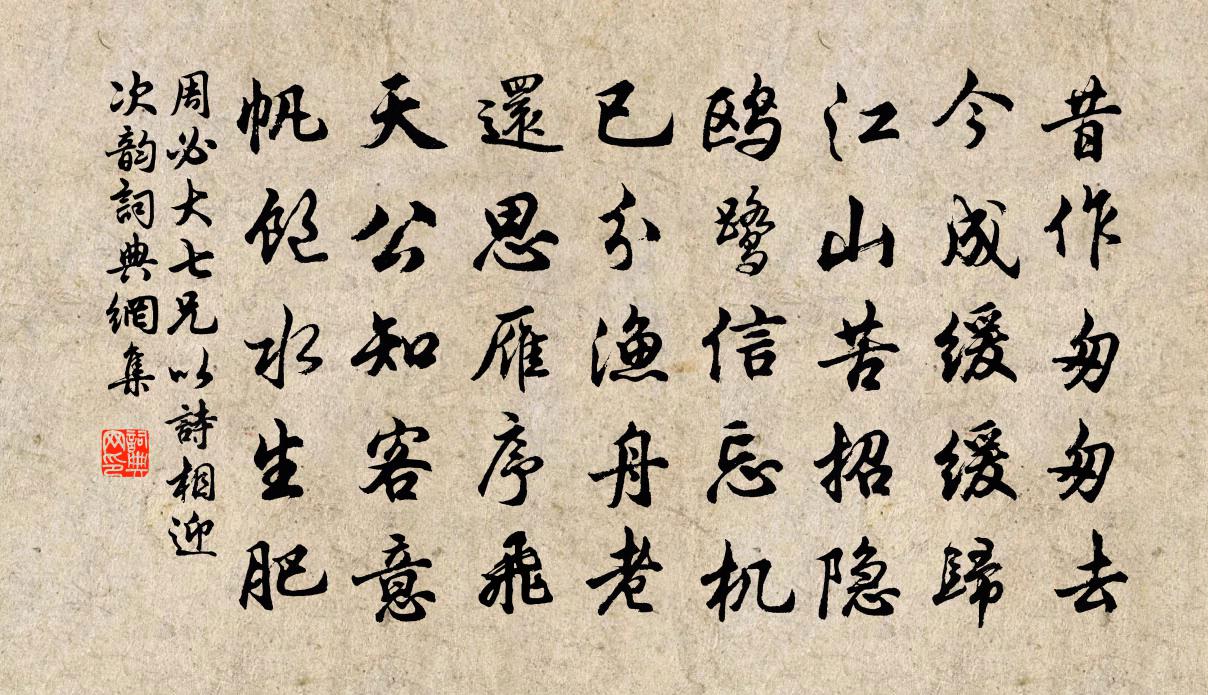 昔作匆匆去
今成缓缓歸
江山苦招隐
鸥鹭信忘机
已分漁舟老
還思雁序飛
天公知客意
帆飽水生肥
周必大七兄以詩相迎
次韵詞典網集
詞典网印